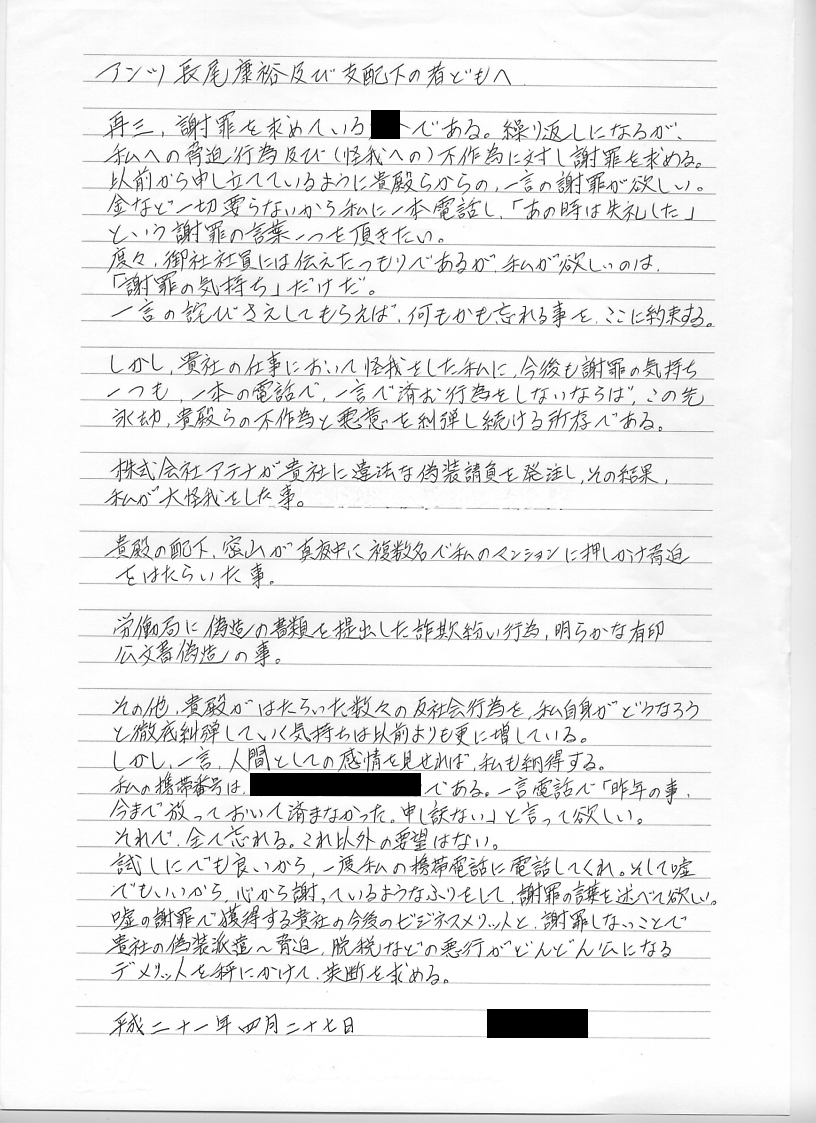 アンツ 長尾康裕及び支配下の者どもへ
再三、謝罪を求めている である。繰り返しになるが、
私への脅迫行為及び(怪我への)不作為に対し謝罪を求める。
以前から申し立てているように貴殿らからの、一言の謝罪が欲しい。
金など一切要らないから私に一本電話し、「あの時は失礼した」
という謝罪の言葉一つを頂きたい。
度々、御社社員には伝えたつもりであるが、私が欲しいのは、
「謝罪の気持ち」だけだ。
一言の詫びさえしてもらえば、何もかも忘れる事を、ここに約束する。
しかし、貴社の仕事において怪我をした私に、今後も謝罪の気持ち
一つも、一本の電話で、一言で済お行為をしないならば、この先
永劫、貴殿らの不作為と悪意を糾弾し続ける所存である。
株式会社アテナが貴社に違法な偽装請負を発注し、その結果、
私が大怪我をした事。
貴殿の配下、密山が真夜中に複数名で私のマンションに押しかけ脅迫
をはたらいた事。
労働局に偽造の書類を提出した詐欺紛い行為、明らかな有印
公文書偽造の事。
その他、貴殿がはたらいた数々の反社会行為を、私自身がどうなろう
と徹底糾弾していく気持ちは以前よりも更に増している。
しかし、一言、人間としての感情を見せれば、私も納得する。
私の携帯番号は、 である。一言電話で「昨年の事、
今まで放っておいて済まなかった。申し訳ない」と言って欲しい。
それで、全て忘れる。これ以外の要望はない。
試しにでも良いから、一度私の携帯電話に電話してくれ。そして嘘
でもいいから、心から謝っているようなふりをして、謝罪の言葉を述べて欲しい。
嘘の謝罪で獲得する貴社の今後のビジネスメリットと、謝罪しないことで
貴社の偽装派遣〜脅迫、脱税などの悪行がどんどん公になる
デメリットを秤にかけて、英断を求める。
平成二十一年四月二十七日